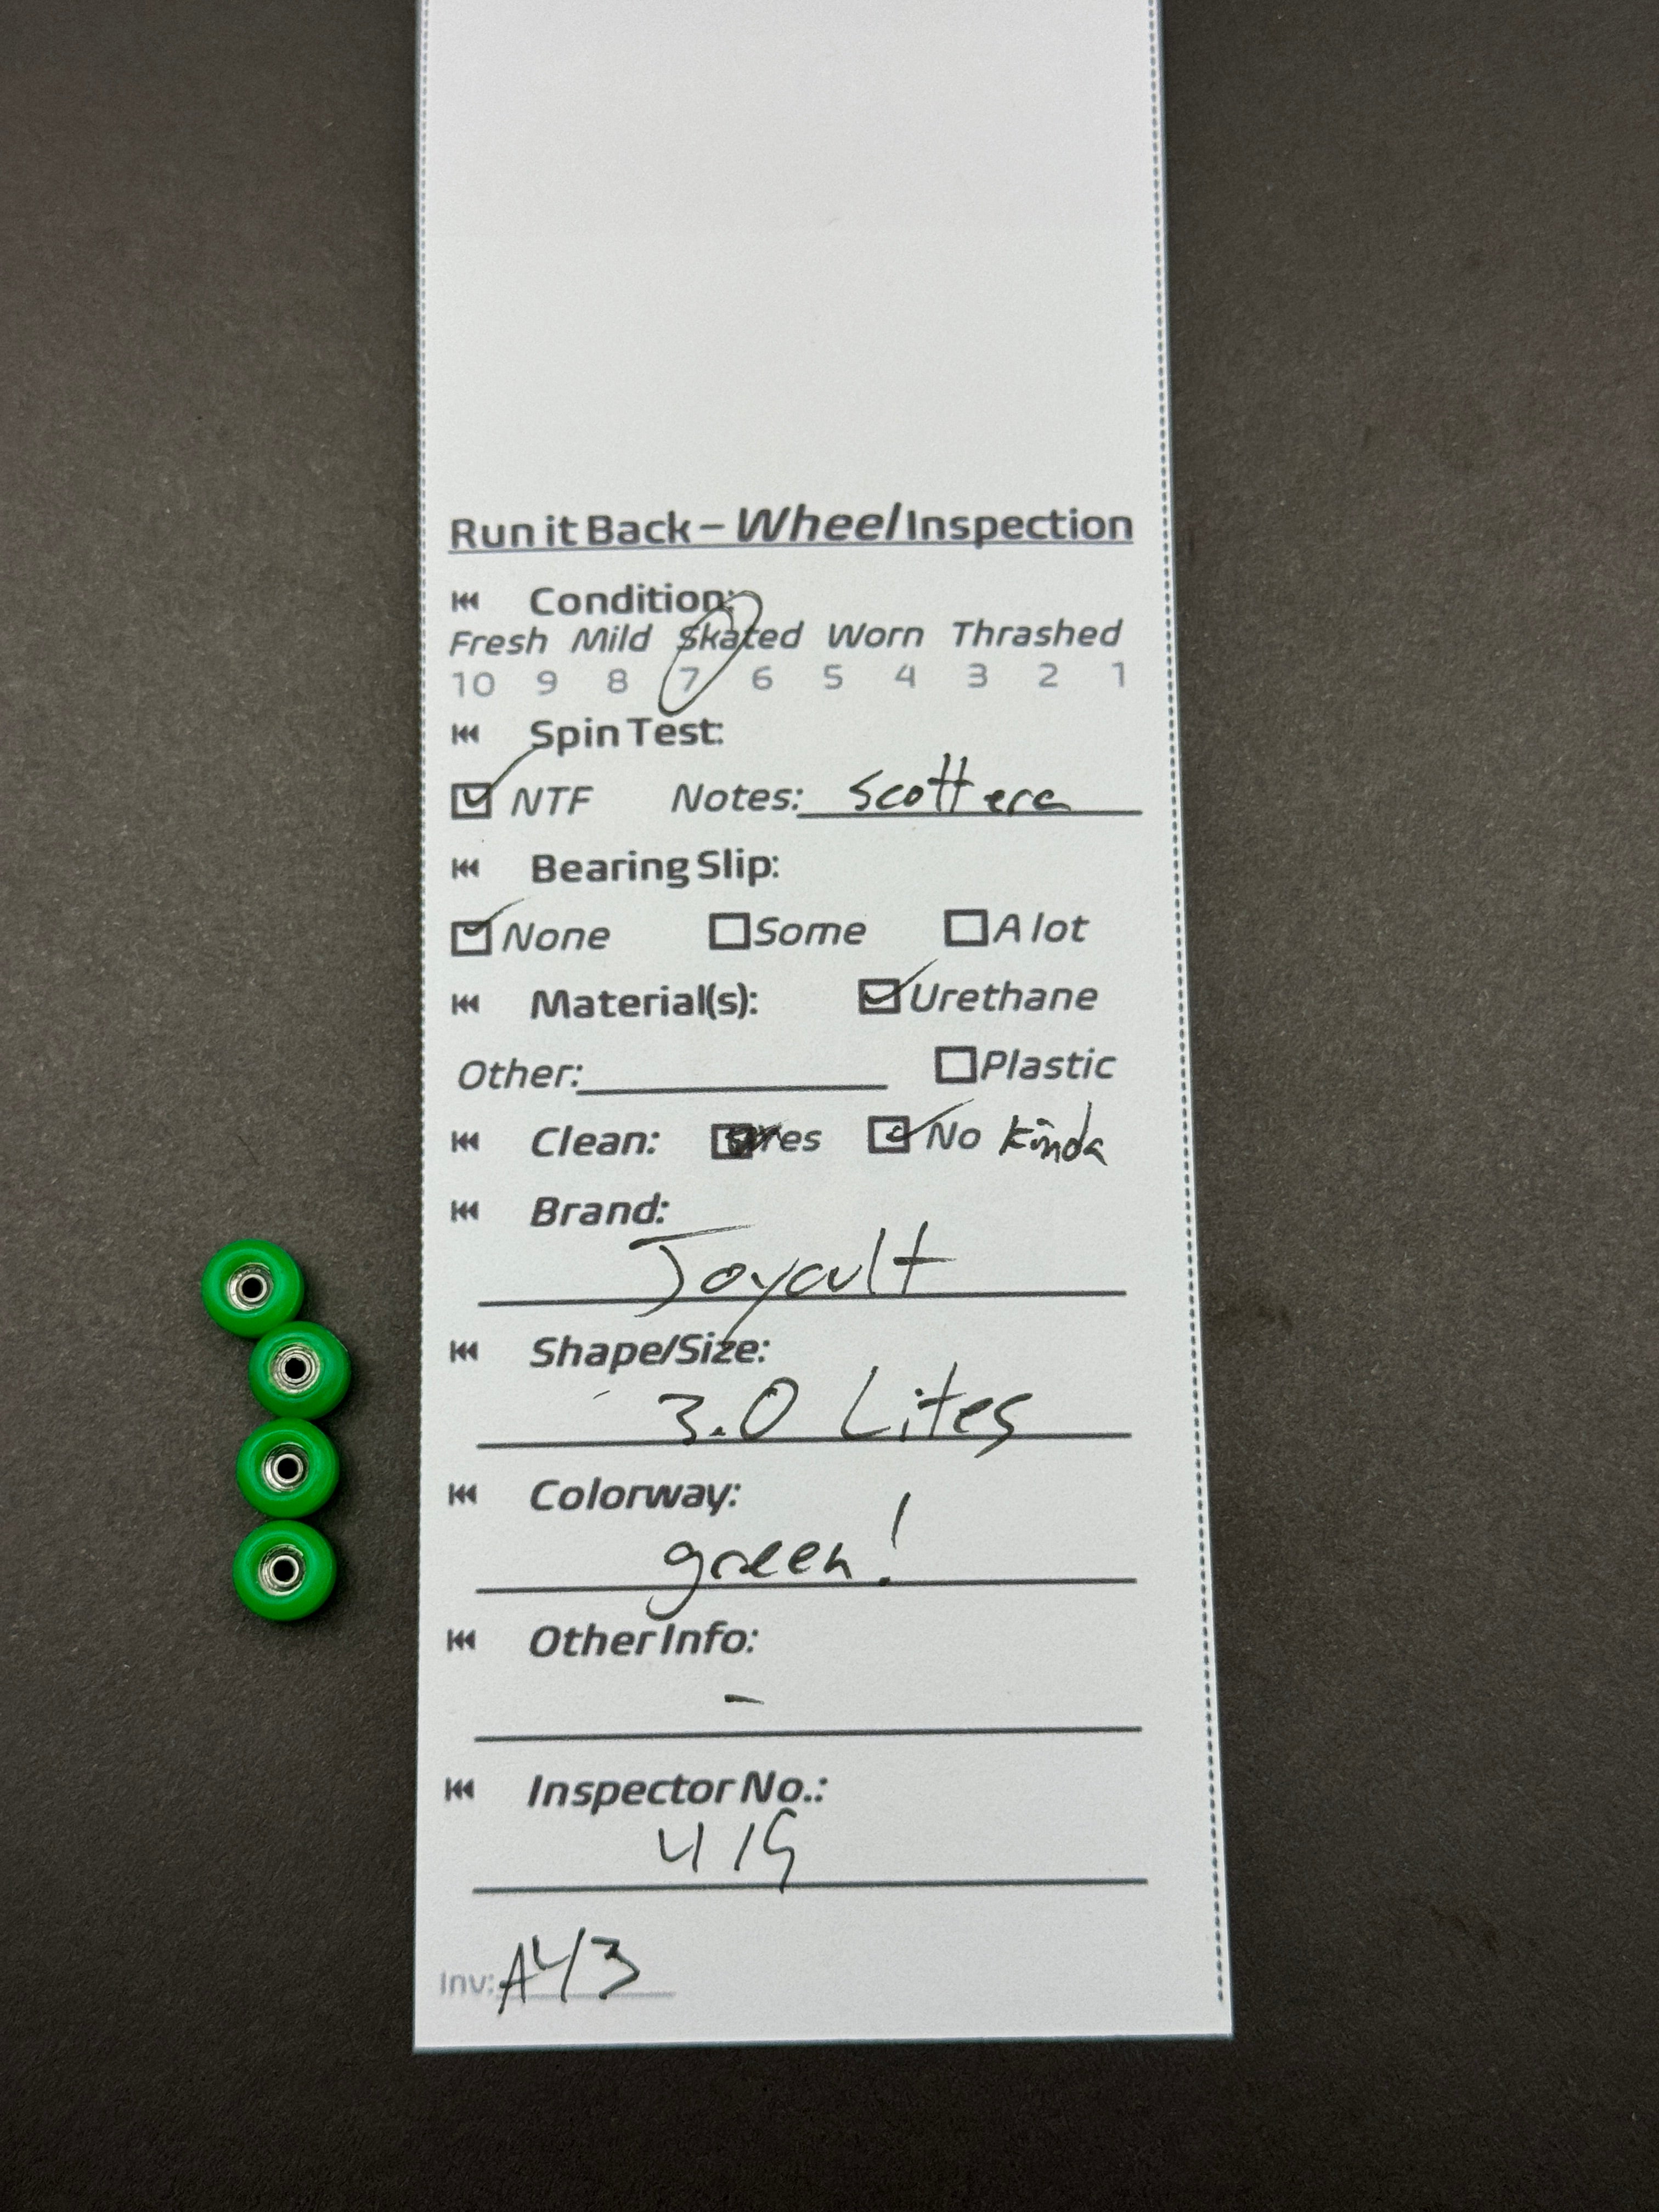 Run it Back – Wheel Inspection
Condition:
Fresh Mild Skated Worn Thrashed
10 9 8 7 6 5 4 3 2 1
Spin Test:
NTF Notes: Scott era
Bearing Slip:
None Some A lot
Material(s): Urethane
Other: Plastic
Clean: Yes No Kinda
Brand:
Joycult
Shape/Size:
3.0 Lites
Colorway:
green!
Other Info:
-
Inspector No.:
419
Inv: A43